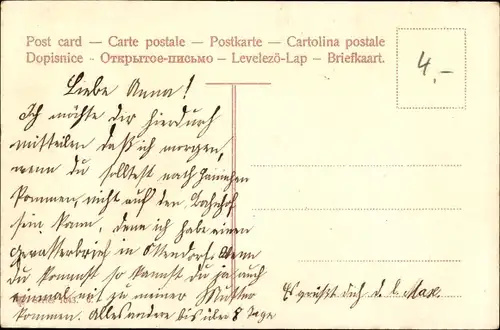 Post card — Carte postale — Postkarte — Cartolina postale
Dopisnice - Открытое-письмо — Levelező-Lap — Briefkaart.
4,-
Liebe Anna!
Ich möchte dir hierdurch
mitteilen daß ich morgen,
wenn du solltest nach Hainichen
kommen, nicht auf den Bahnhof
sein kann, denn ich habe einen
in Ottendorf. Wenn
du kommst so kannst du ja auch
einmal mit zu meiner Mutter
kommen. Alles andere bis über 8 Tage
Es grüßt dich d. l. Max.